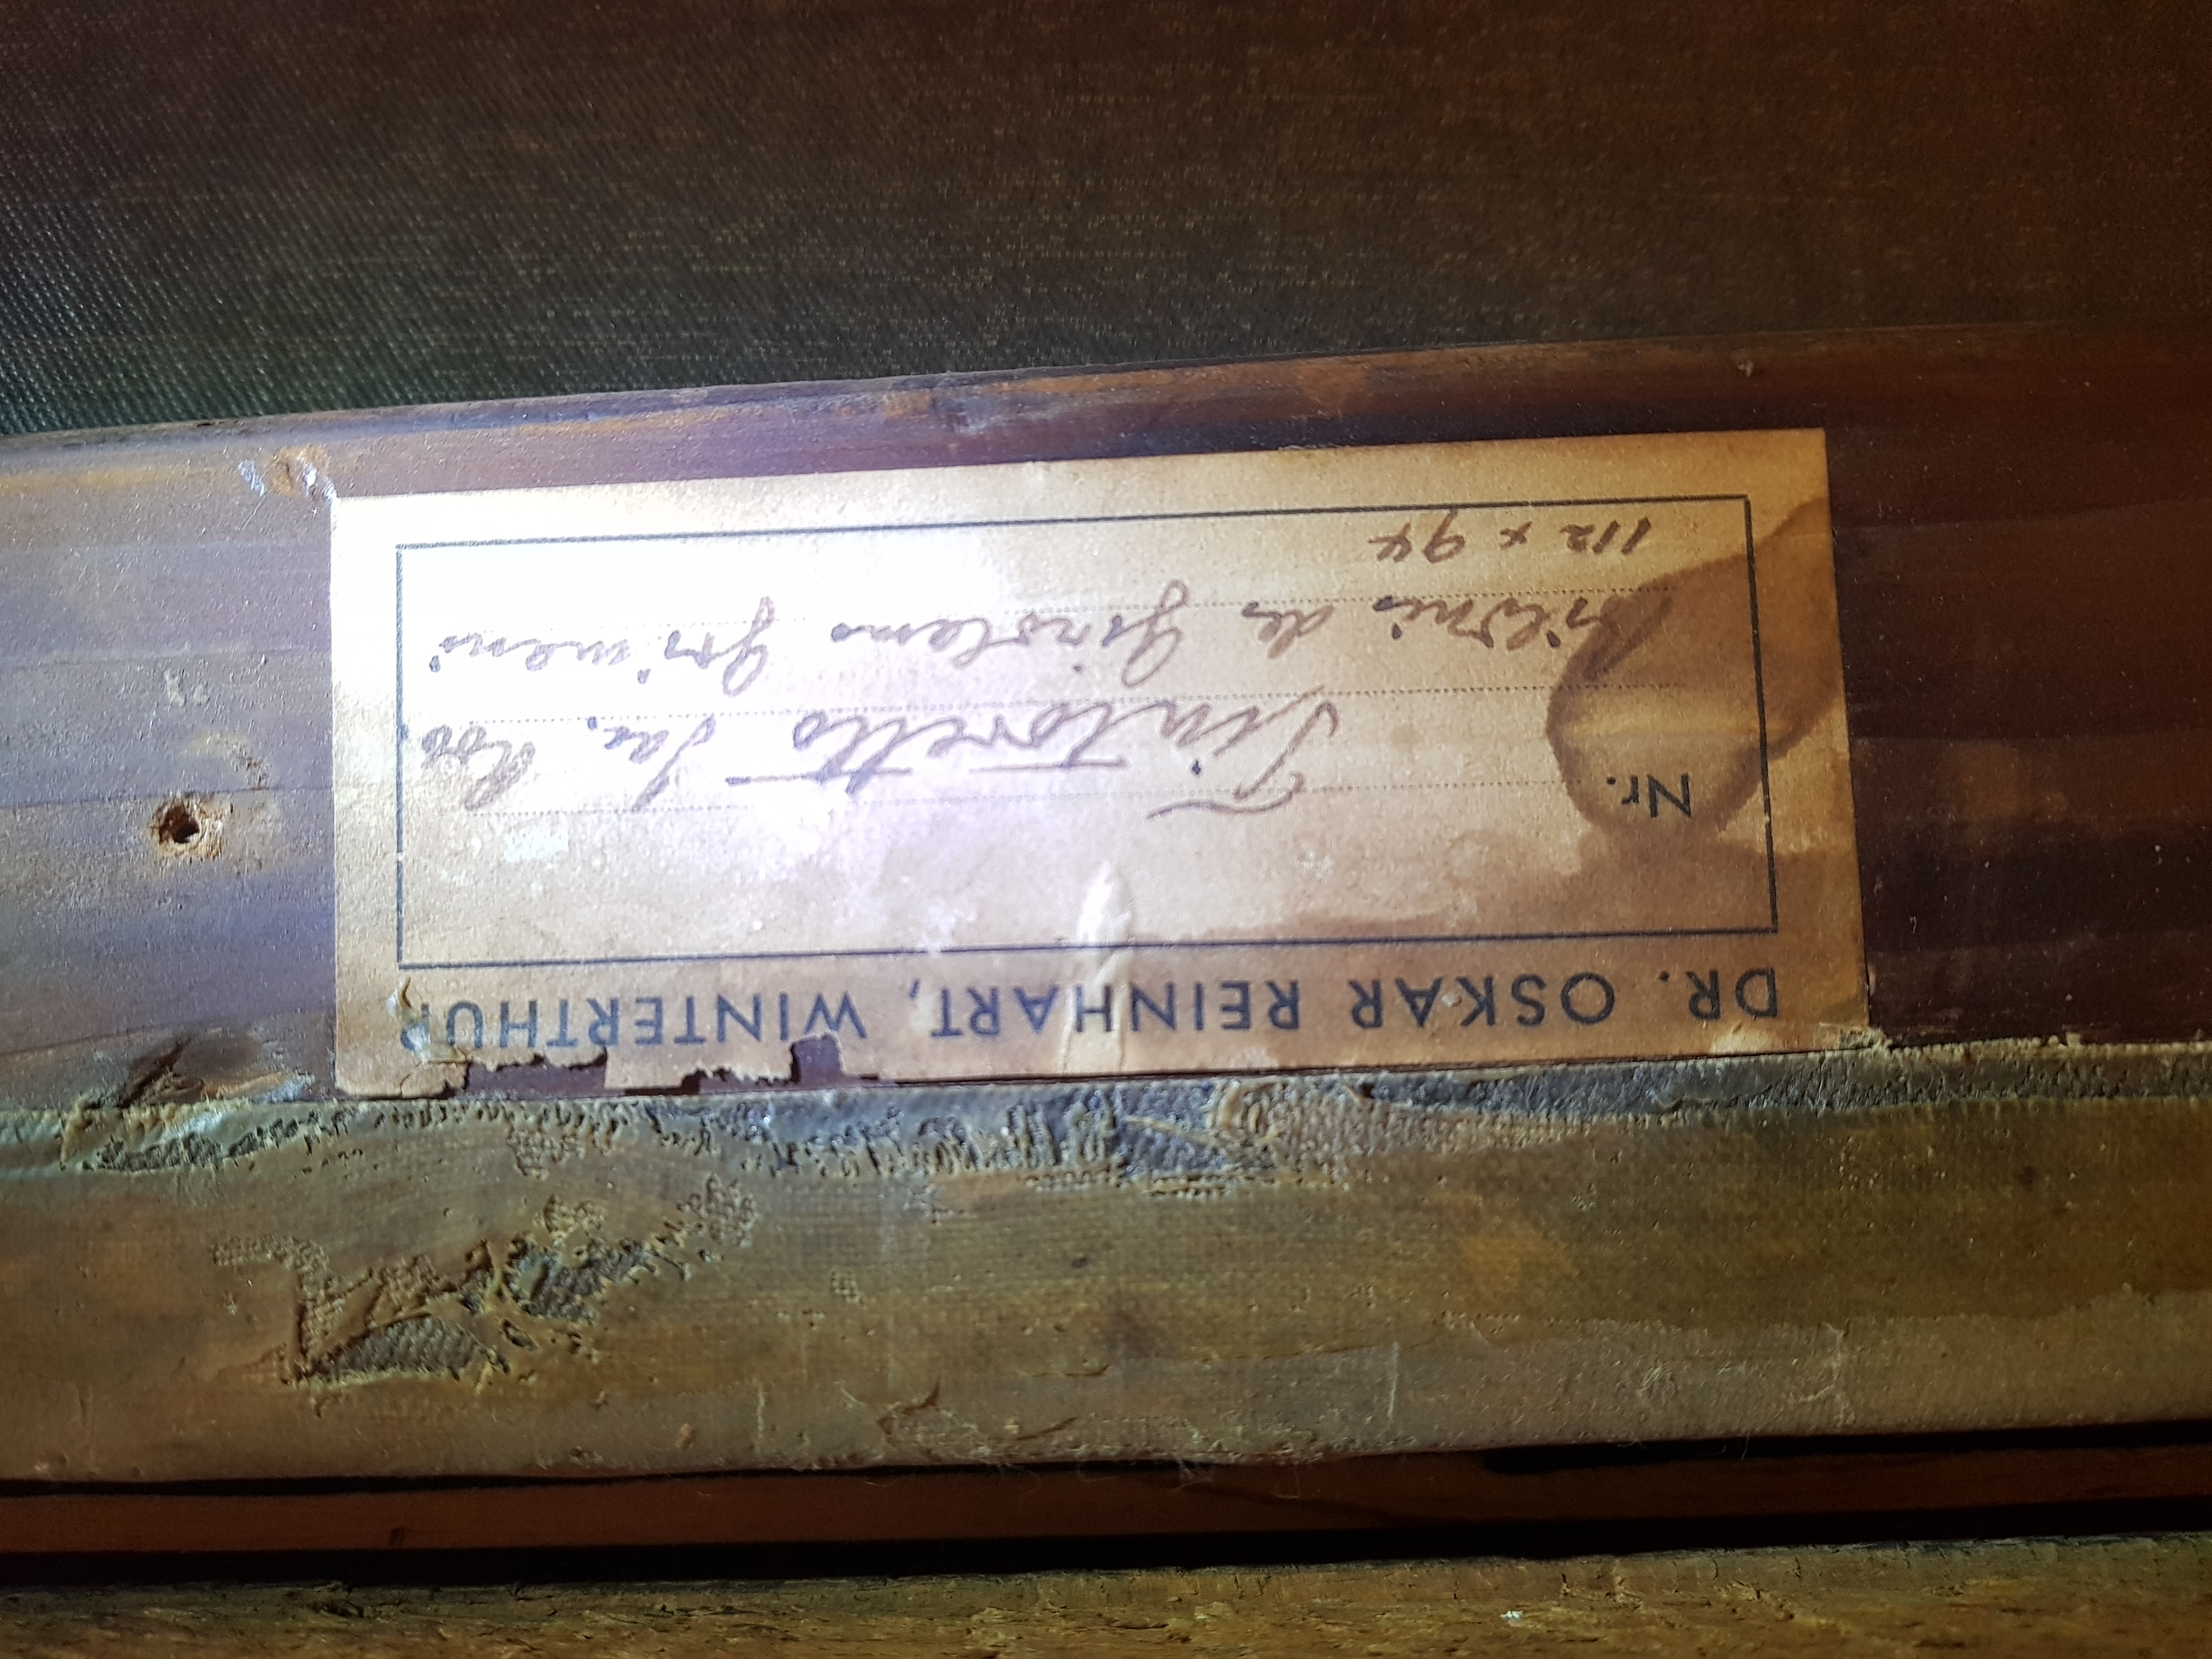 DR. OSKAR REINHART, WINTERTHUR
Nr. Tintoretto Jac. Rob.
Bildnis des Girolamo Grimani
112 x 94